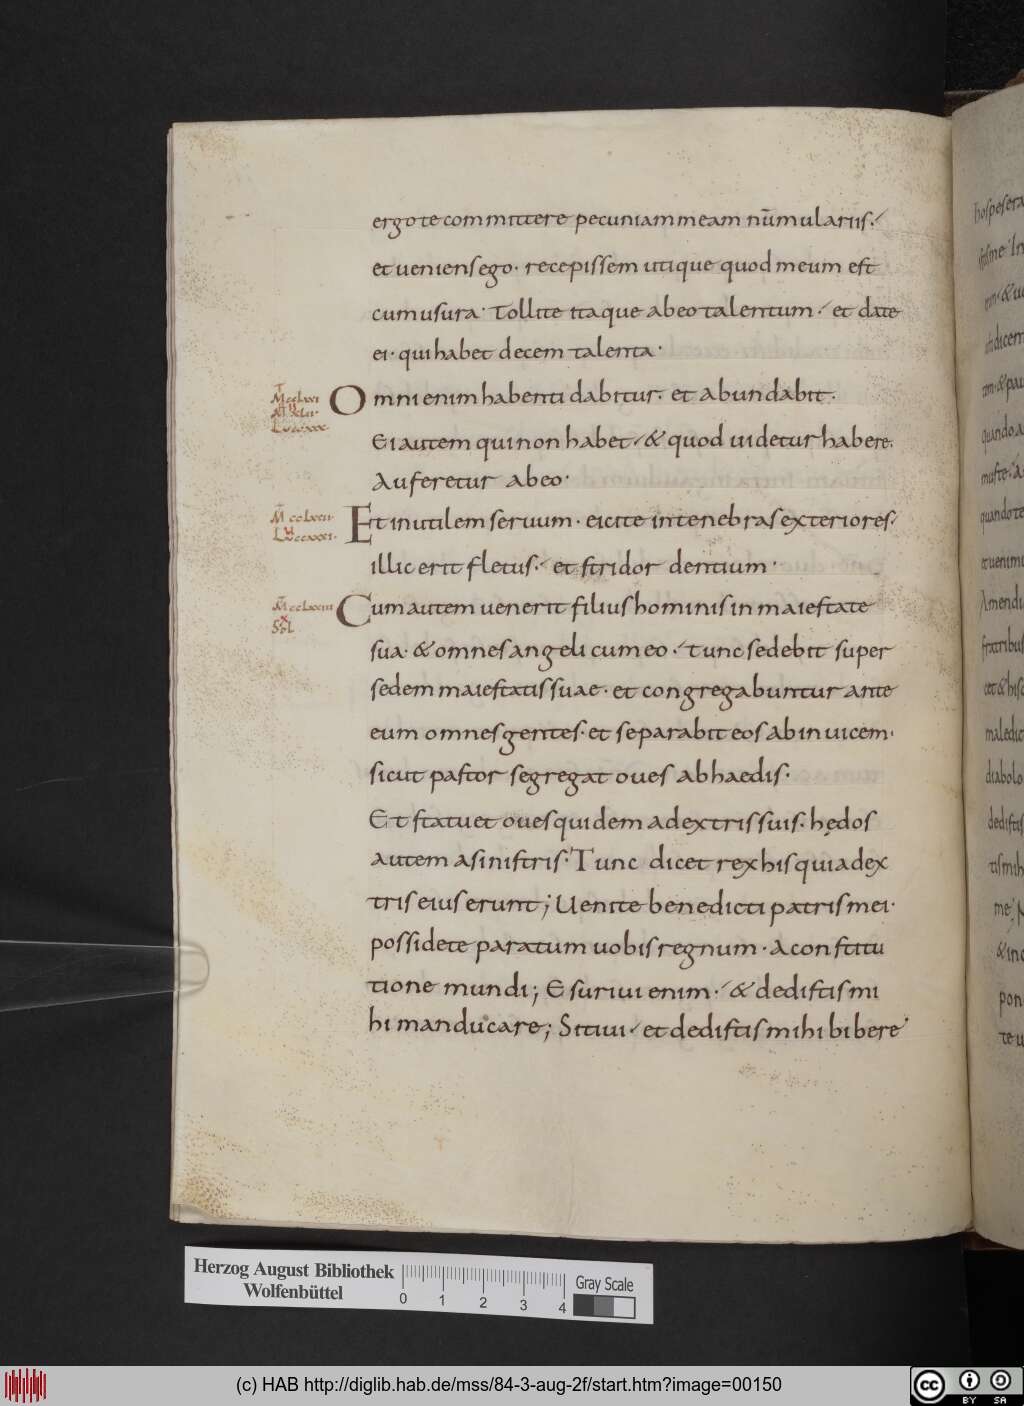 ergo te committere pecuniam meam nūmulariis·
et veniens ego· recepissem utique quod meum est
cum usura· Tollite itaque ab eo talentum· et date
ei· qui habet decem talenta·
Omni enim habenti dabitur· et abundabit·
Ei autem qui non habet· & quod uidetur habere·
Auferetur ab eo·
Et inutilem seruum· eicite in tenebras exteriores·
illic erit fletus· et stridor dentium·
Cum autem uenerit filius hominis in maiestate
sua· & omnes angeli cum eo· tunc sedebit super
sedem maiestatis suae· et congregabuntur ante
eum omnes gentes· et separabit eos ab inuicem·
sicut pastor segregat oues ab haedis·
Et statuet oues quidem a dextris suis· hędos
autem a sinistris· Tunc dicet rex his qui a dex
tris eius erunt; Uenite benedicti patris mei·
possidete paratum uobis regnum· a constitu
tione mundi; Esuriui enim· & dedistis mi
hi manducare; Sitiui· et dedistis mihi bibere·
hospes era
quando a
quando te
et uenimu
Amendi
fratribus
maledic
diabolo
dedistis
tis mih
me
& in c
pon
te u
Herzog August Bibliothek
Wolfenbüttel
0 1 2 3 4
Gray Scale
(c) HAB http://diglib.hab.de/mss/84-3-aug-2f/start.htm?image=00150
cc BY SA